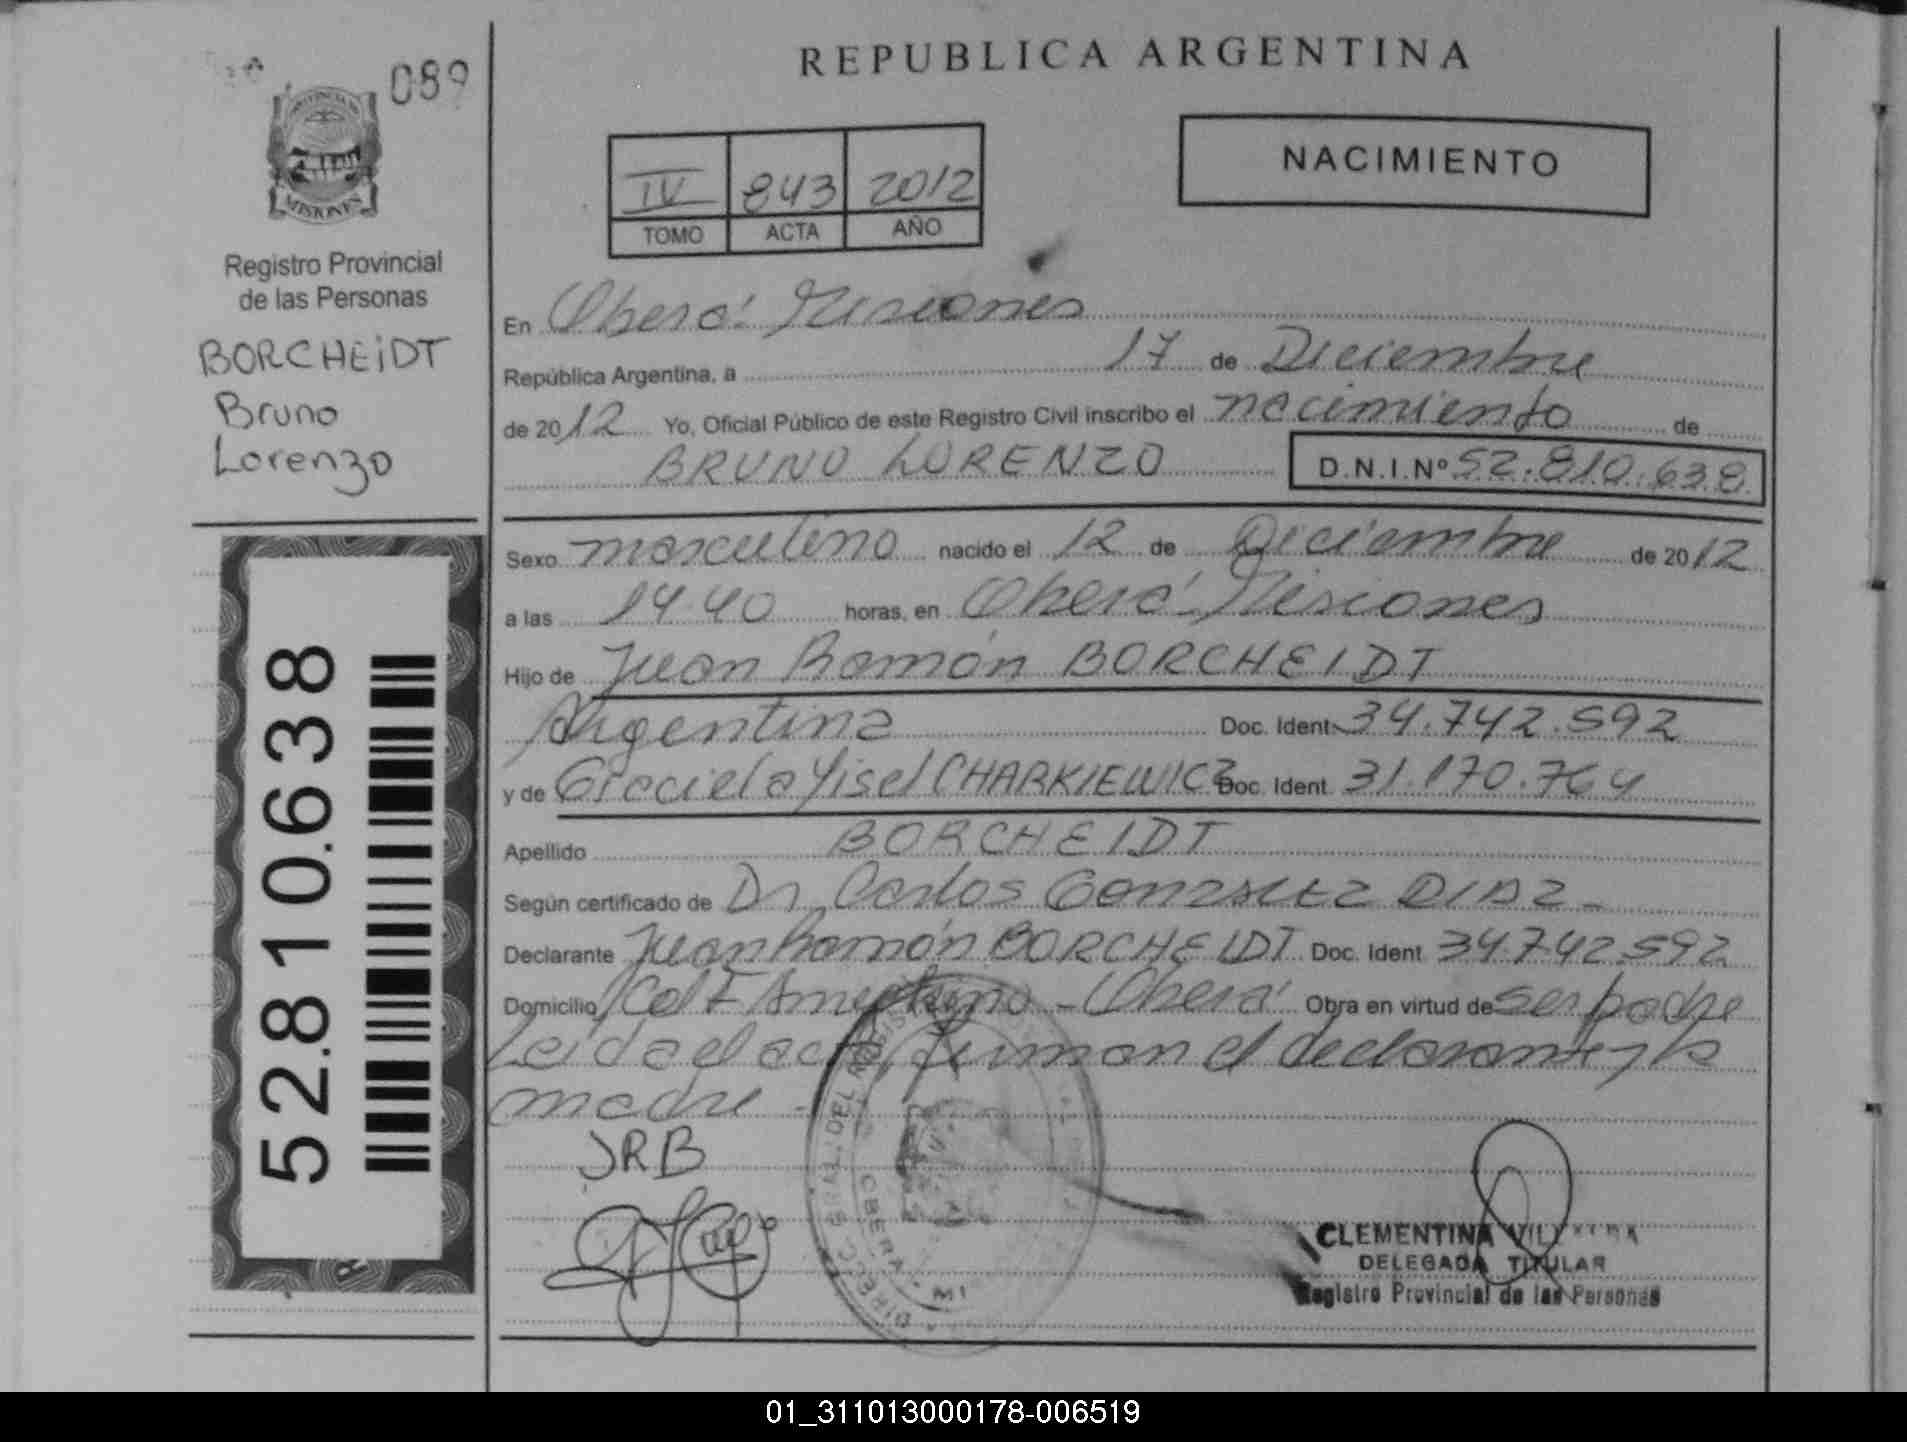 089
PROVINCIA DE
MISIONES
Registro Provincial
de las Personas
BORCHEIDT
Bruno
Lorenzo
52.810.638
REPUBLICA ARGENTINA
NACIMIENTO
IV 843 2012
TOMO ACTA AÑO
En Oberá Misiones
República Argentina, a 17 de Diciembre
de 2012 Yo, Oficial Público de este Registro Civil inscribo el nacimiento de
BRUNO LORENZO D.N.I.Nº 52.810.638
Sexo masculino nacido el 12 de Diciembre de 2012
a las 14.40 horas, en Oberá Misiones
Hijo de Juan Ramón BORCHEIDT
Argentina Doc. Ident 34.742.592
y de Graciela Yisel CHARKIEWICZ Doc. Ident. 31.170.764
Apellido BORCHEIDT
Según certificado de Dr Carlos GONZALEZ DIAZ -
Declarante Juan Ramón BORCHEIDT Doc. Ident 34.742.592
Domicilio Col F Ameghino - Oberá Obra en virtud de ser padre
Leida el acta, firman el declarante y la
madre -
JRB
CLEMENTINA
DELEGADA TITULAR
Registro Provincial de las Personas
01_311013000178-006519